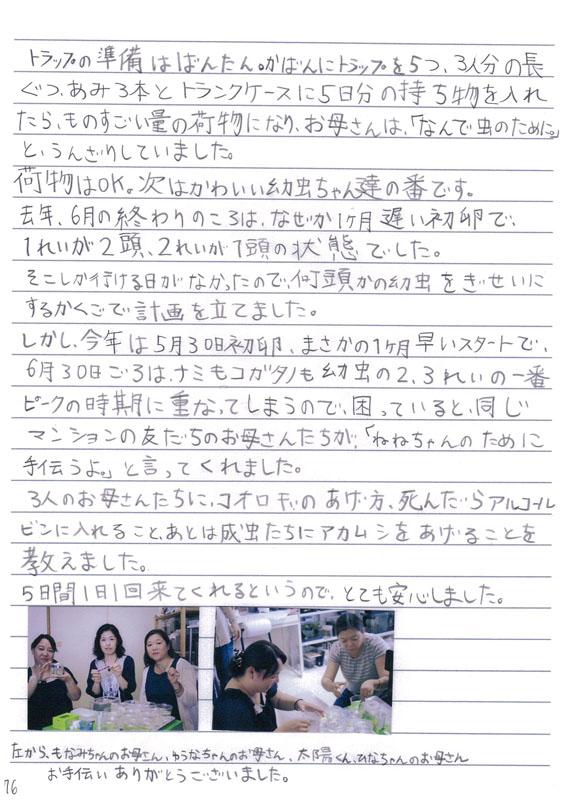 トラップの準備はばんたん。かばんにトラップを5つ、3人分の長
ぐつ、あみ3本とトランクケースに5日分の持ち物を入れ
たら、ものすごい量の荷物になり、お母さんは、「なんで虫のために。」
と、うんざりしていました。
荷物はOK。次はかわいい幼虫ちゃん達の番です。
去年、6月の終わりのころは、なぜか1ヶ月遅い初卵で、
1れいが2頭、2れいが1頭の状態でした。
そこしか行ける日がなかったので、何頭かの幼虫をぎせいに
するかくごで計画を立てました。
しかし、今年は5月30日初卵、まさかの1ヶ月早いスタートで、
6月30日ごろは、ナミもコガタノも幼虫の2、3れいの一番
ピークの時期に重なってしまうので、困っていると、同じ
マンションの友だちのお母さんたちが、「ねねちゃんのために
手伝うよ。」と言ってくれました。
3人のお母さんたちに、コオロギのあげ方、死んだらアルコール
ビンに入れること、あとは成虫たちにアカムシをあげることを
教えました。
5日間1日1回来てくれるというので、とても安心しました。
左から、もなみちゃんのお母さん、ゆうなちゃんのお母さん、太陽くん、ひなちゃんのお母さん
お手伝いありがとうございました。
76